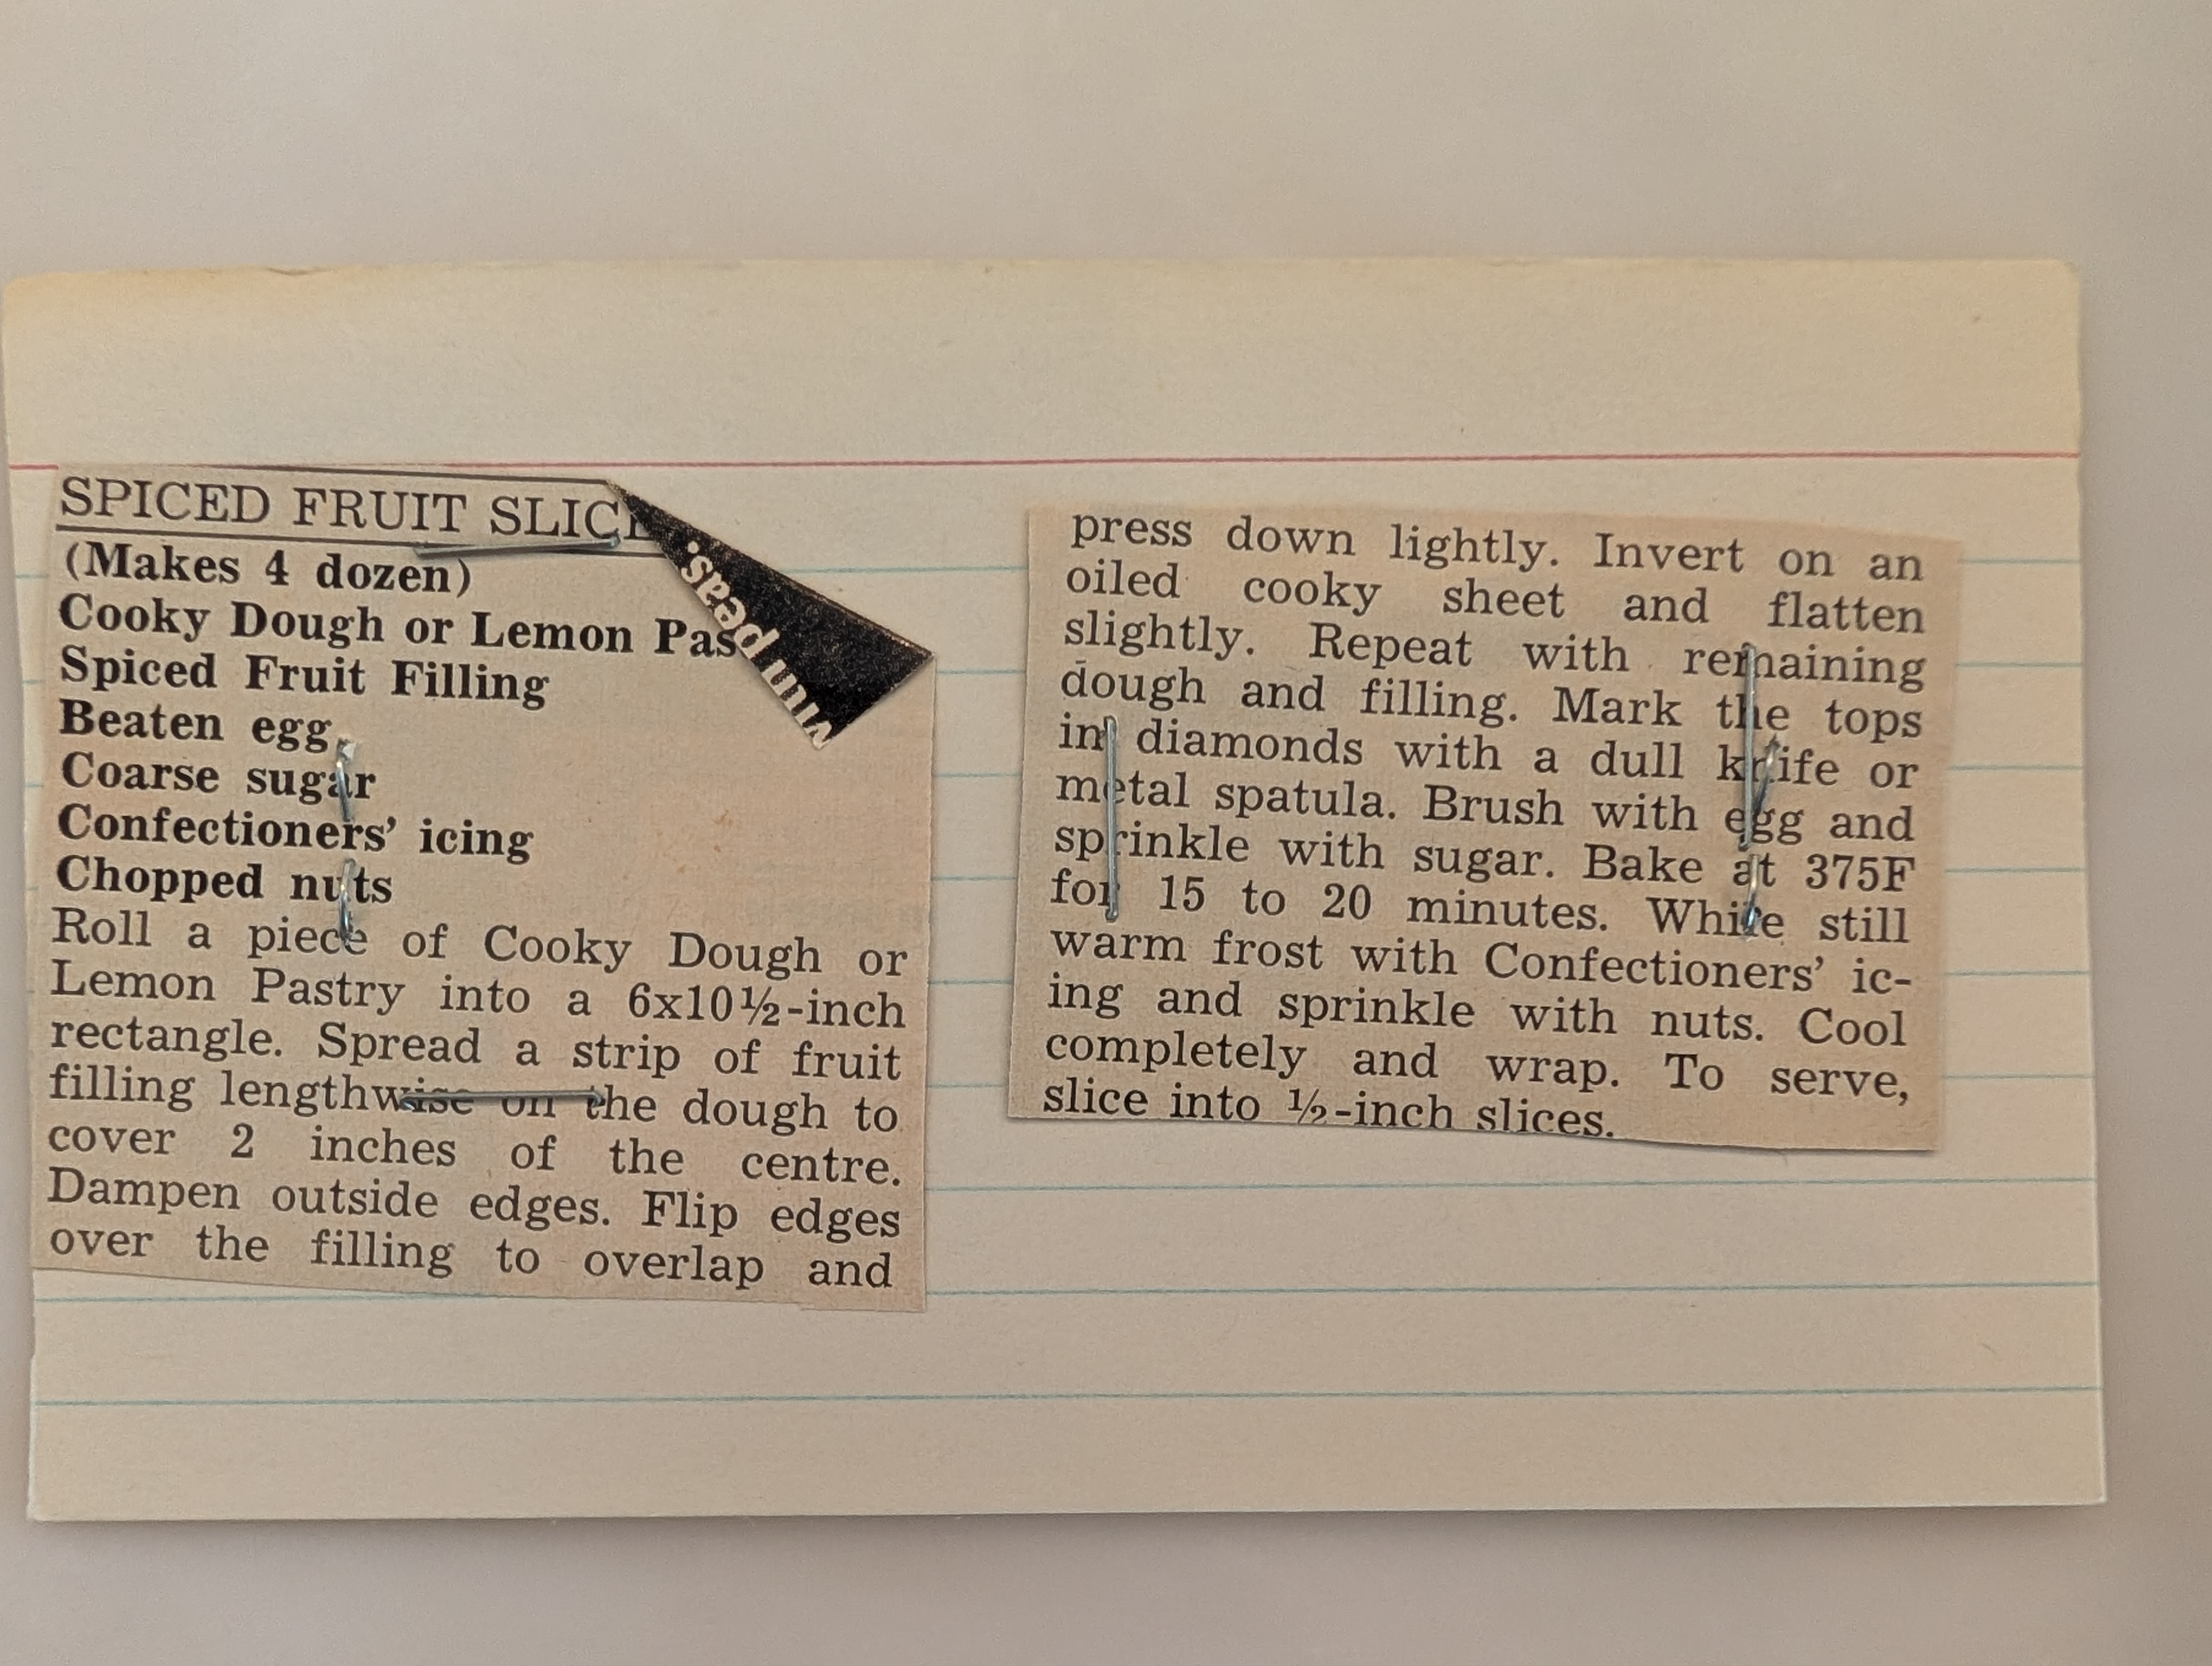 SPICED FRUIT SLIC
(Makes 4 dozen)
Cooky Dough or Lemon Pas
Spiced Fruit Filling
Beaten egg
Coarse sugar
Confectioners' icing
Chopped nuts
Roll a piece of Cooky Dough or
Lemon Pastry into a 6x10½-inch
rectangle. Spread a strip of fruit
filling lengthwise on the dough to
cover 2 inches of the centre.
Dampen outside edges. Flip edges
over the filling to overlap and
peas.
press down lightly. Invert on an
oiled cooky sheet and flatten
slightly. Repeat with remaining
dough and filling. Mark the tops
in diamonds with a dull knife or
metal spatula. Brush with egg and
sprinkle with sugar. Bake at 375F
for 15 to 20 minutes. While still
warm frost with Confectioners' ic-
ing and sprinkle with nuts. Cool
completely and wrap. To serve,
slice into ½-inch slices.